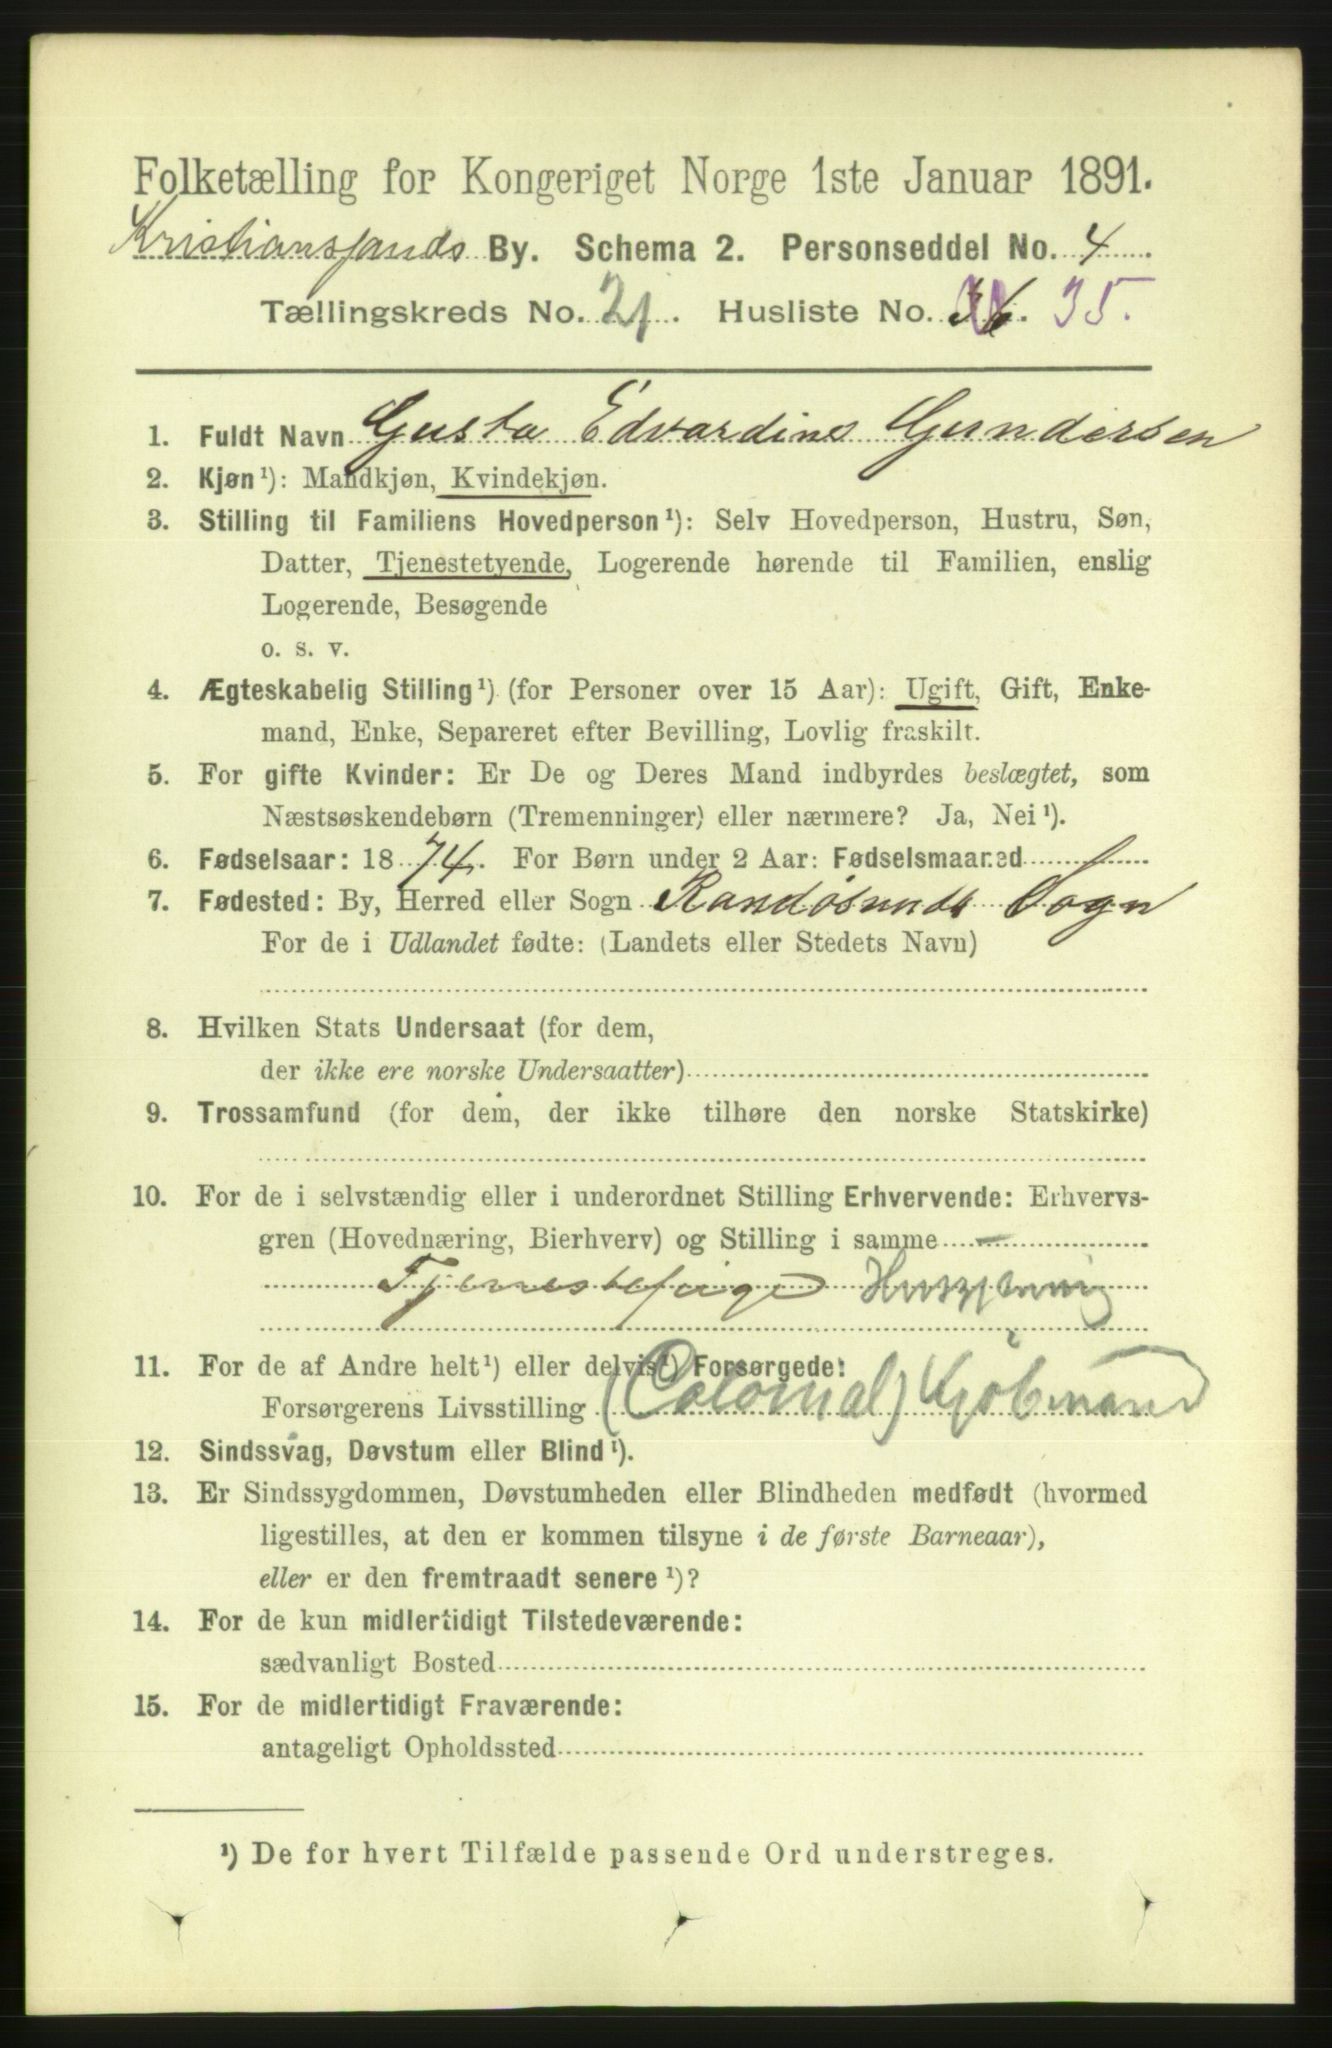 Folketælling for Kongeriget Norge 1ste Januar 1891.
Kristianssands By. Schema 2. Personseddel No. 4
Tællingskreds No. 21. Husliste No. 36. 35.
1. Fuldt Navn Gusta Edvardine Gundersen
2. Kjøn¹): Mandkjøn, Kvindekjøn.
3. Stilling til Familiens Hovedperson¹): Selv Hovedperson, Hustru, Søn,
Datter, Tjenestetyende, Logerende hørende til Familien, enslig
Logerende, Besøgende
o. s. v.
4. Ægteskabelig Stilling¹) (for Personer over 15 Aar): Ugift, Gift, Enke-
mand, Enke, Separeret efter Bevilling, Lovlig fraskilt.
5. For gifte Kvinder: Er De og Deres Mand indbyrdes beslægtet, som
Næstsøskendebørn (Tremenninger) eller nærmere? Ja, Nei¹).
6. Fødselsaar: 1874. For Børn under 2 Aar: Fødselsmaaned
7. Fødested: By, Herred eller Sogn Randøsunds Sogn
For de i Udlandet fødte: (Landets eller Stedets Navn)
8. Hvilken Stats Undersaat (for dem,
der ikke ere norske Undersaatter)
9. Trossamfund (for dem, der ikke tilhøre den norske Statskirke)
10. For de i selvstændig eller i underordnet Stilling Erhvervende: Erhvervs-
gren (Hovednæring, Bierhverv) og Stilling i samme
Tjenestepige Husgjerning
11. For de af Andre helt¹) eller delvis¹) Forsørgede:
Forsørgerens Livsstilling (Colonial) Kjøbmand
12. Sindssvag, Døvstum eller Blind¹).
13. Er Sindssygdommen, Døvstumheden eller Blindheden medfødt (hvormed
ligestilles, at den er kommen tilsyne i de første Barneaar),
eller er den fremtraadt senere¹)?
14. For de kun midlertidigt Tilstedeværende:
sædvanligt Bosted
15. For de midlertidigt Fraværende:
antageligt Opholdssted
¹) De for hvert Tilfælde passende Ord understreges.